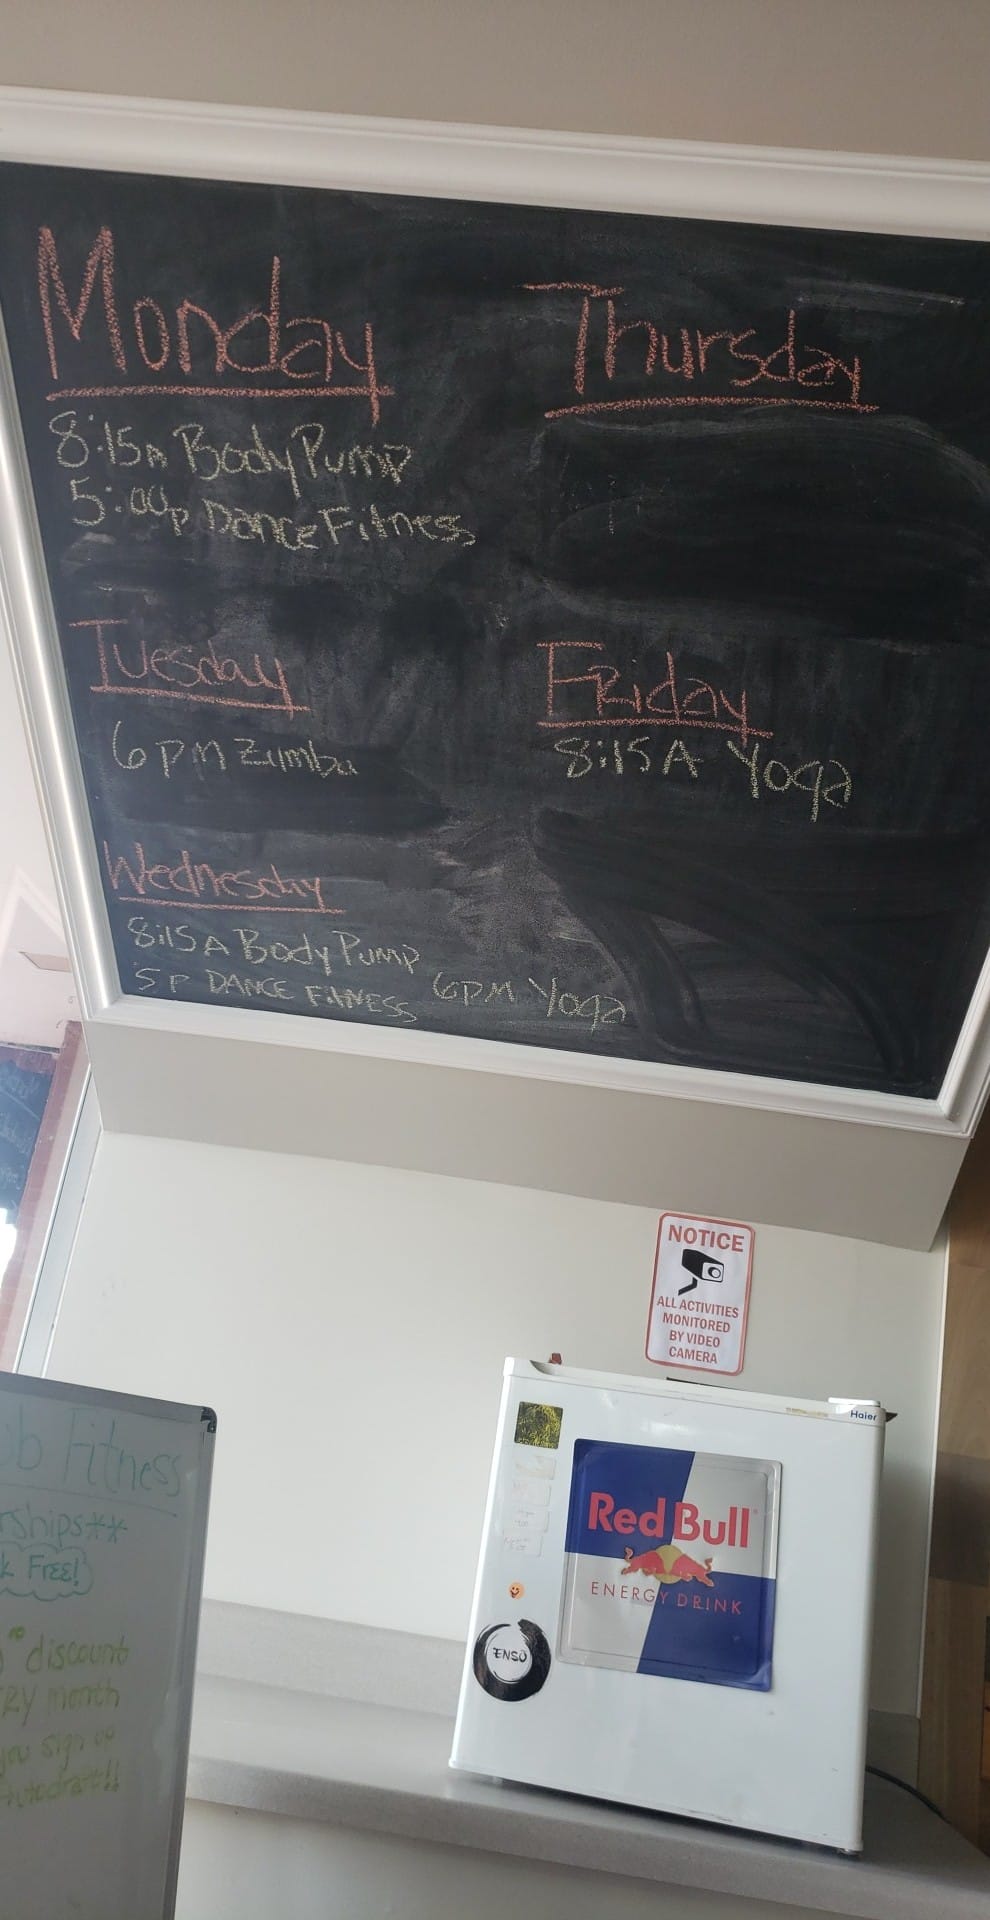 Monday
8:15A Body Pump
5:00p Dance Fitness
Tuesday
6 PM Zumba
Wednesday
8:15 A Body Pump
5 P DANCE FITNESS 6PM Yoga
Thursday
Friday
8:15 A Yoga
NOTICE
ALL ACTIVITIES
MONITORED
BY VIDEO
CAMERA
Haier
Red Bull
ENERGY DRINK
ENSO
Fitness
rships**
Free!
discount
month
you sign up